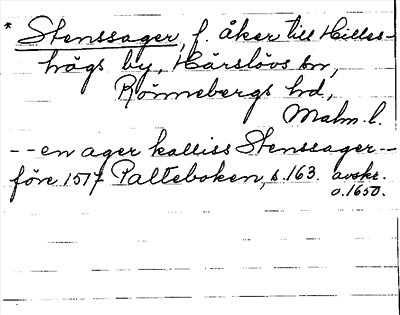 * Stenssager, f. åker till Hilles-
högs by, Härslövs sn,
Rönnebergs hd,
Malm. l.
-- en ager kalliss Stenssager --
före 1517 Palteboken, s. 163. avskr.
o. 1650.